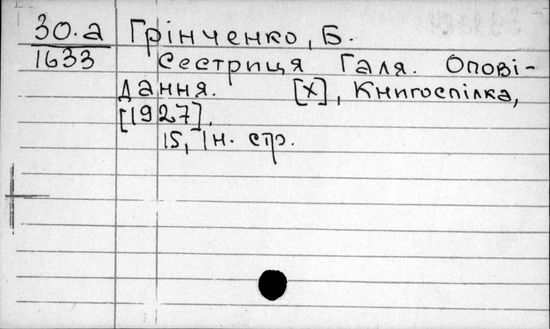 30.а Грінченко, Б.
1633 Сестриця Галя. Опові-
дання. [Х], Книгоспілка,
[1927].
15, 1н. стр.